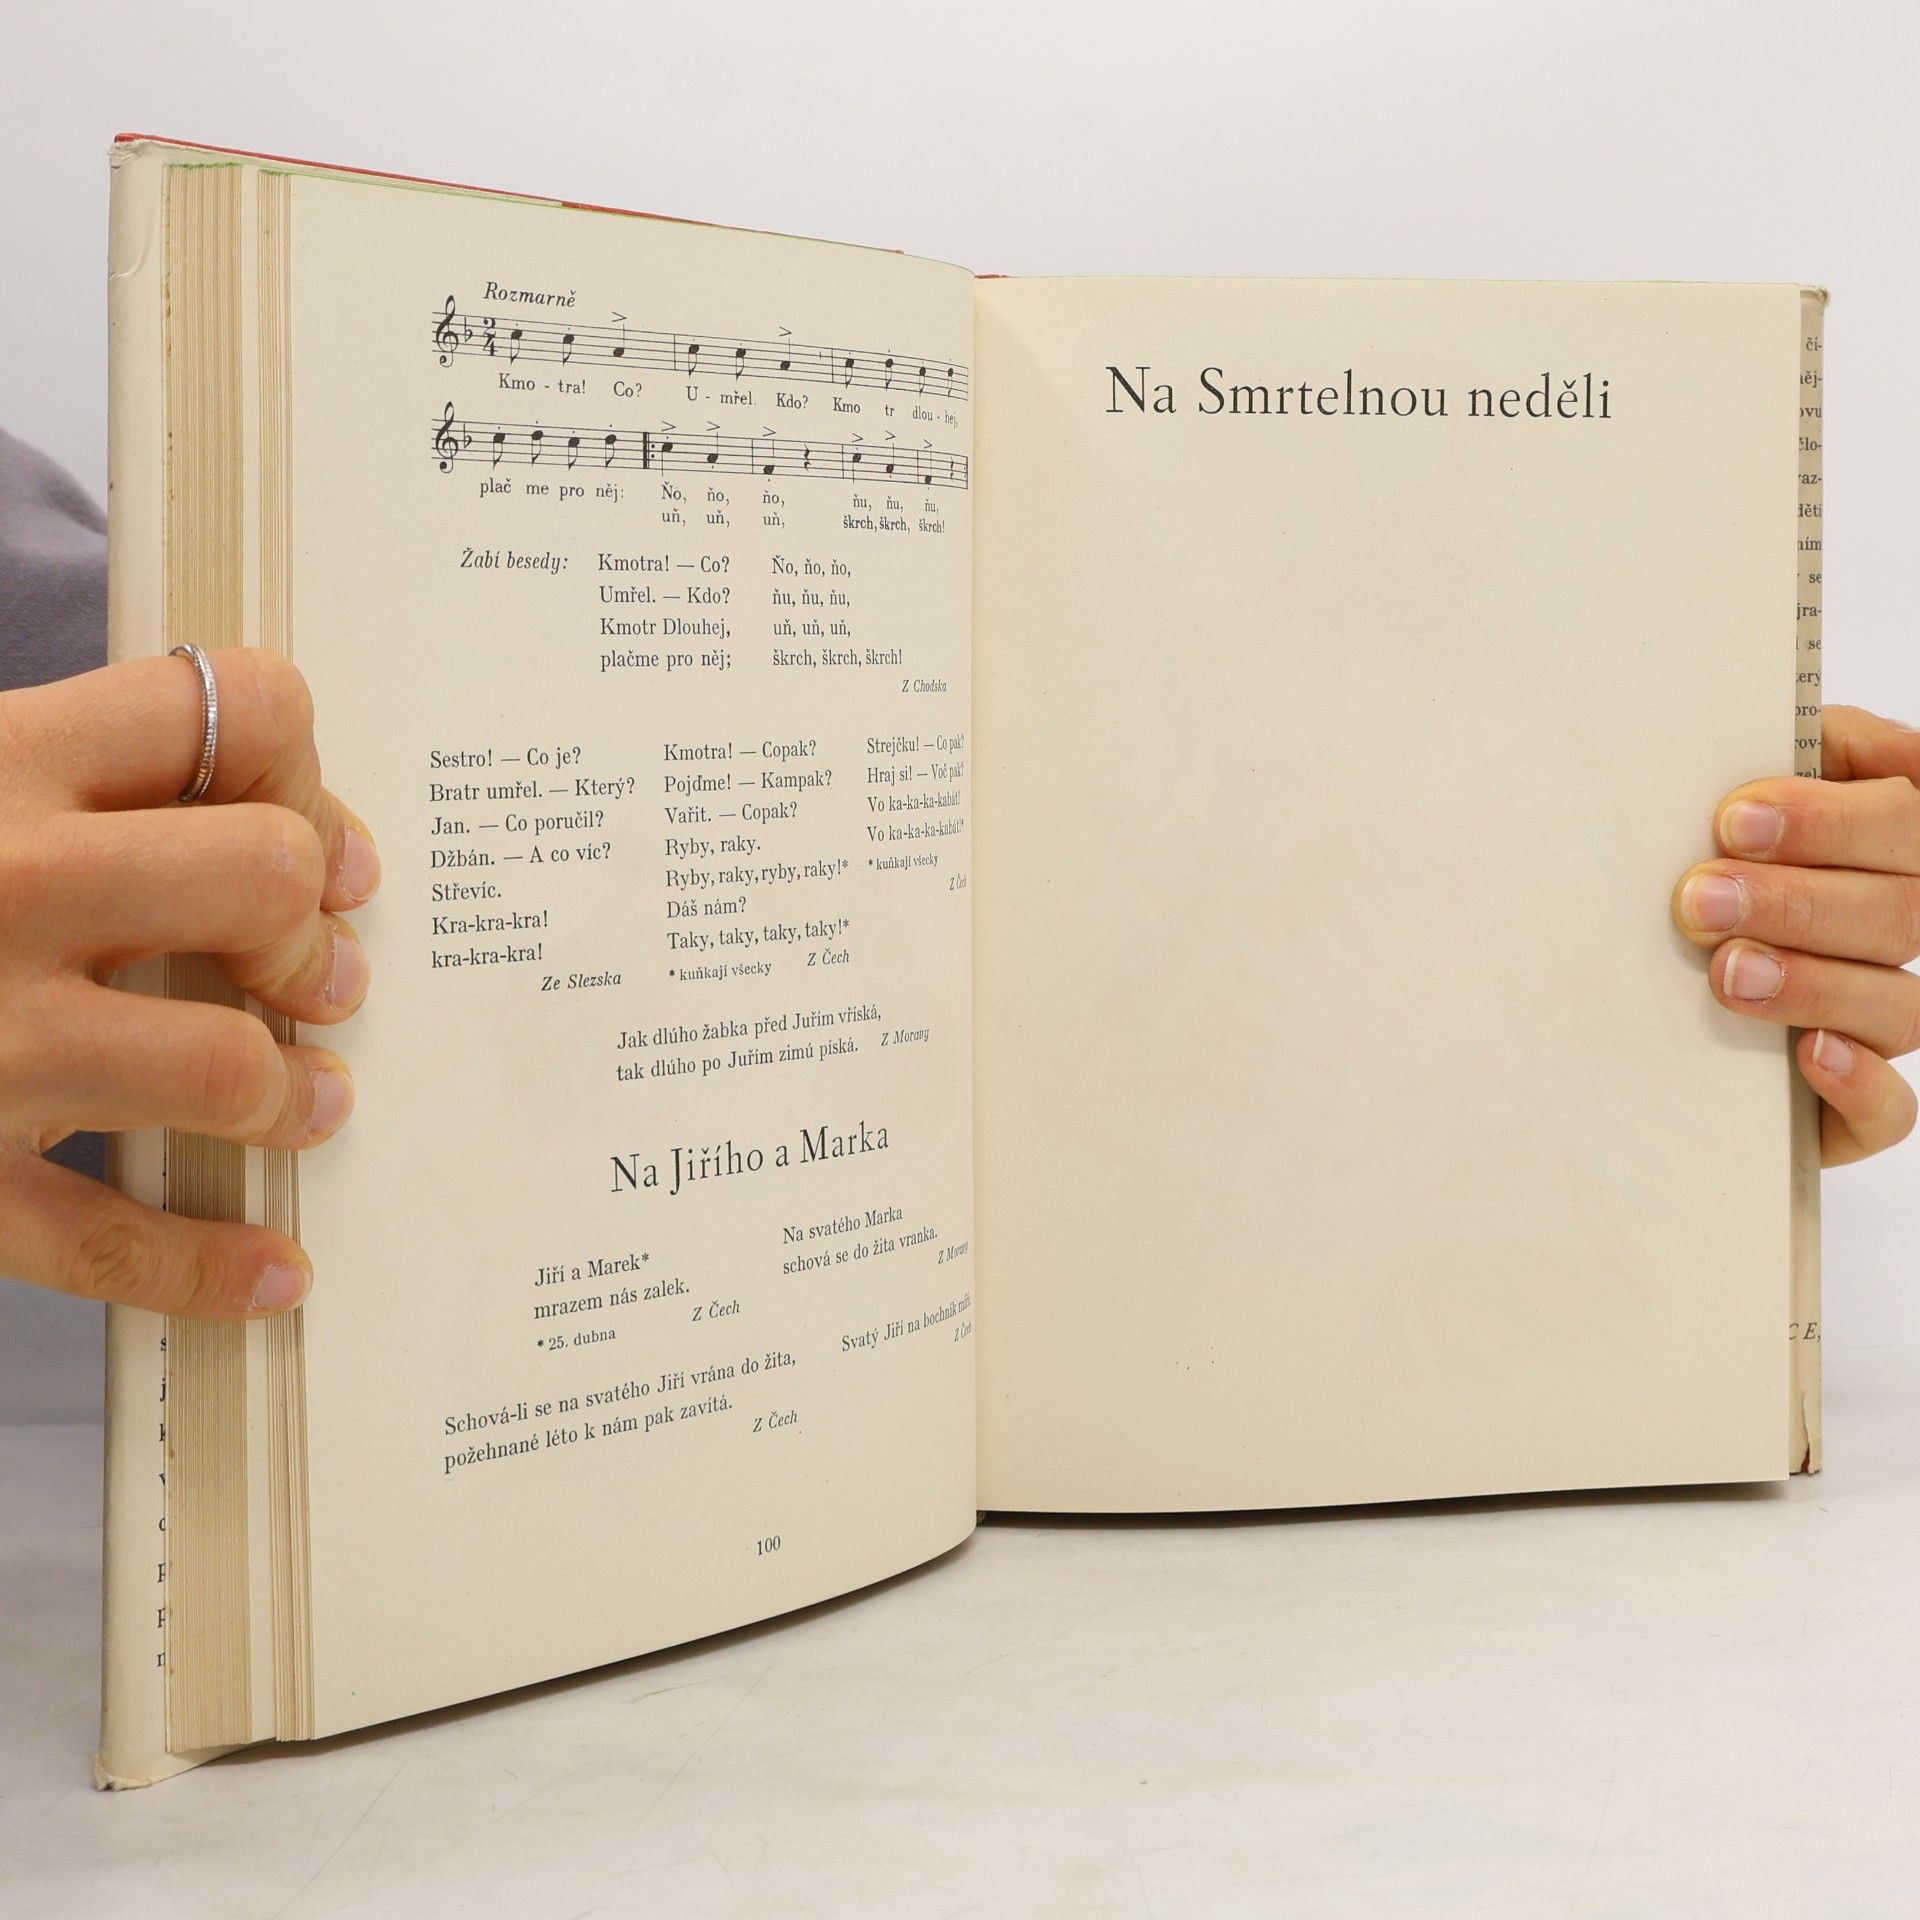 Rozmarně
2
4
Kmo - tra! Co? U - mřel. Kdo? Kmo tr dlou - hej,
plač me pro něj: Ňo, ňo, ňo, ňu, ňu, ňu,
uň, uň, uň, škrch, škrch, škrch!
Žabí besedy:
Kmotra! — Co?
Umřel. — Kdo?
Kmotr Dlouhej,
plačme pro něj;
Ňo, ňo, ňo,
ňu, ňu, ňu,
uň, uň, uň,
škrch, škrch, škrch!
Z Chodska
Sestro! — Co je?
Bratr umřel. — Který?
Jan. — Co poručil?
Džbán. — A co víc?
Střevíc.
Kra-kra-kra!
kra-kra-kra!
Ze Slezska
Kmotra! — Copak?
Pojďme! — Kampak?
Vařit. — Copak?
Ryby, raky.
Ryby, raky, ryby, raky!*
Dáš nám?
Taky, taky, taky, taky!*
* kuňkají všecky
Z Čech
Strejčku! — Co pak?
Hraj si! — Voč pak?
Vo ka-ka-ka-kabát!
Vo ka-ka-ka-kabát!*
* kuňkají všecky
Z Čech
Jak dlúho žabka před Juřím vříská,
tak dlúho po Juřím zimú píská.
Z Moravy
Na Jiřího a Marka
Jiří a Marek*
mrazem nás zalek.
Z Čech
* 25. dubna
Na svatého Marka
schová se do žita vranka.
Z Moravy
Svatý Jiří na bochník míří.
Z Čech
Schová-li se na svatého Jiří vrána do žita,
požehnané léto k nám pak zavítá.
Z Čech
100
Na Smrtelnou neděli
čí-
něj-
ovu
člo-
vaz-
děti
ním
se
jra-
se
terý
pro-
rov-
zel-
CE,